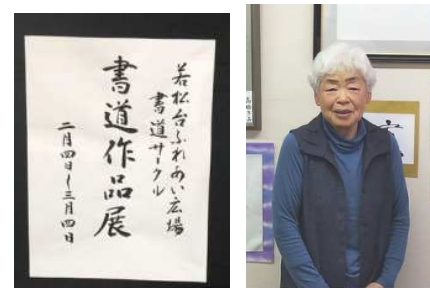 若松台ふれあい広場
書道サークル
書道作品展
二月四日〜三月四日